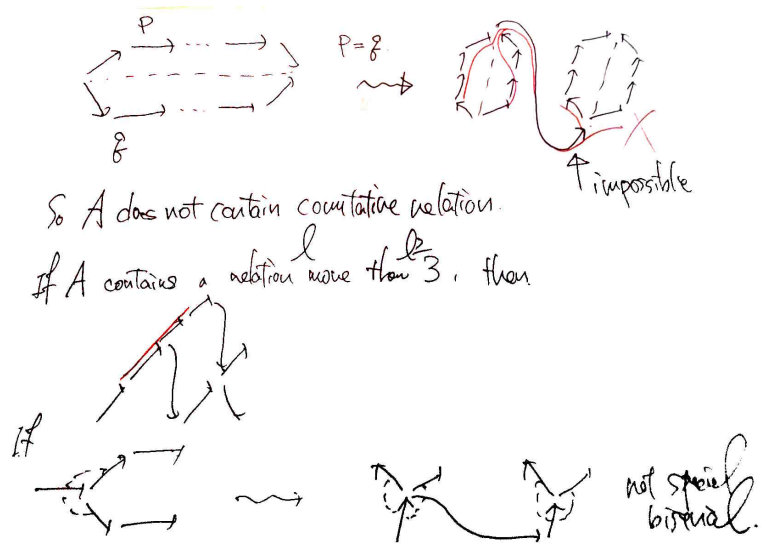 P
P = q.
q
impossible
So A does not contain comtative relation.
If A contains a relation l more than l≥3, then
If
not special
biserial.